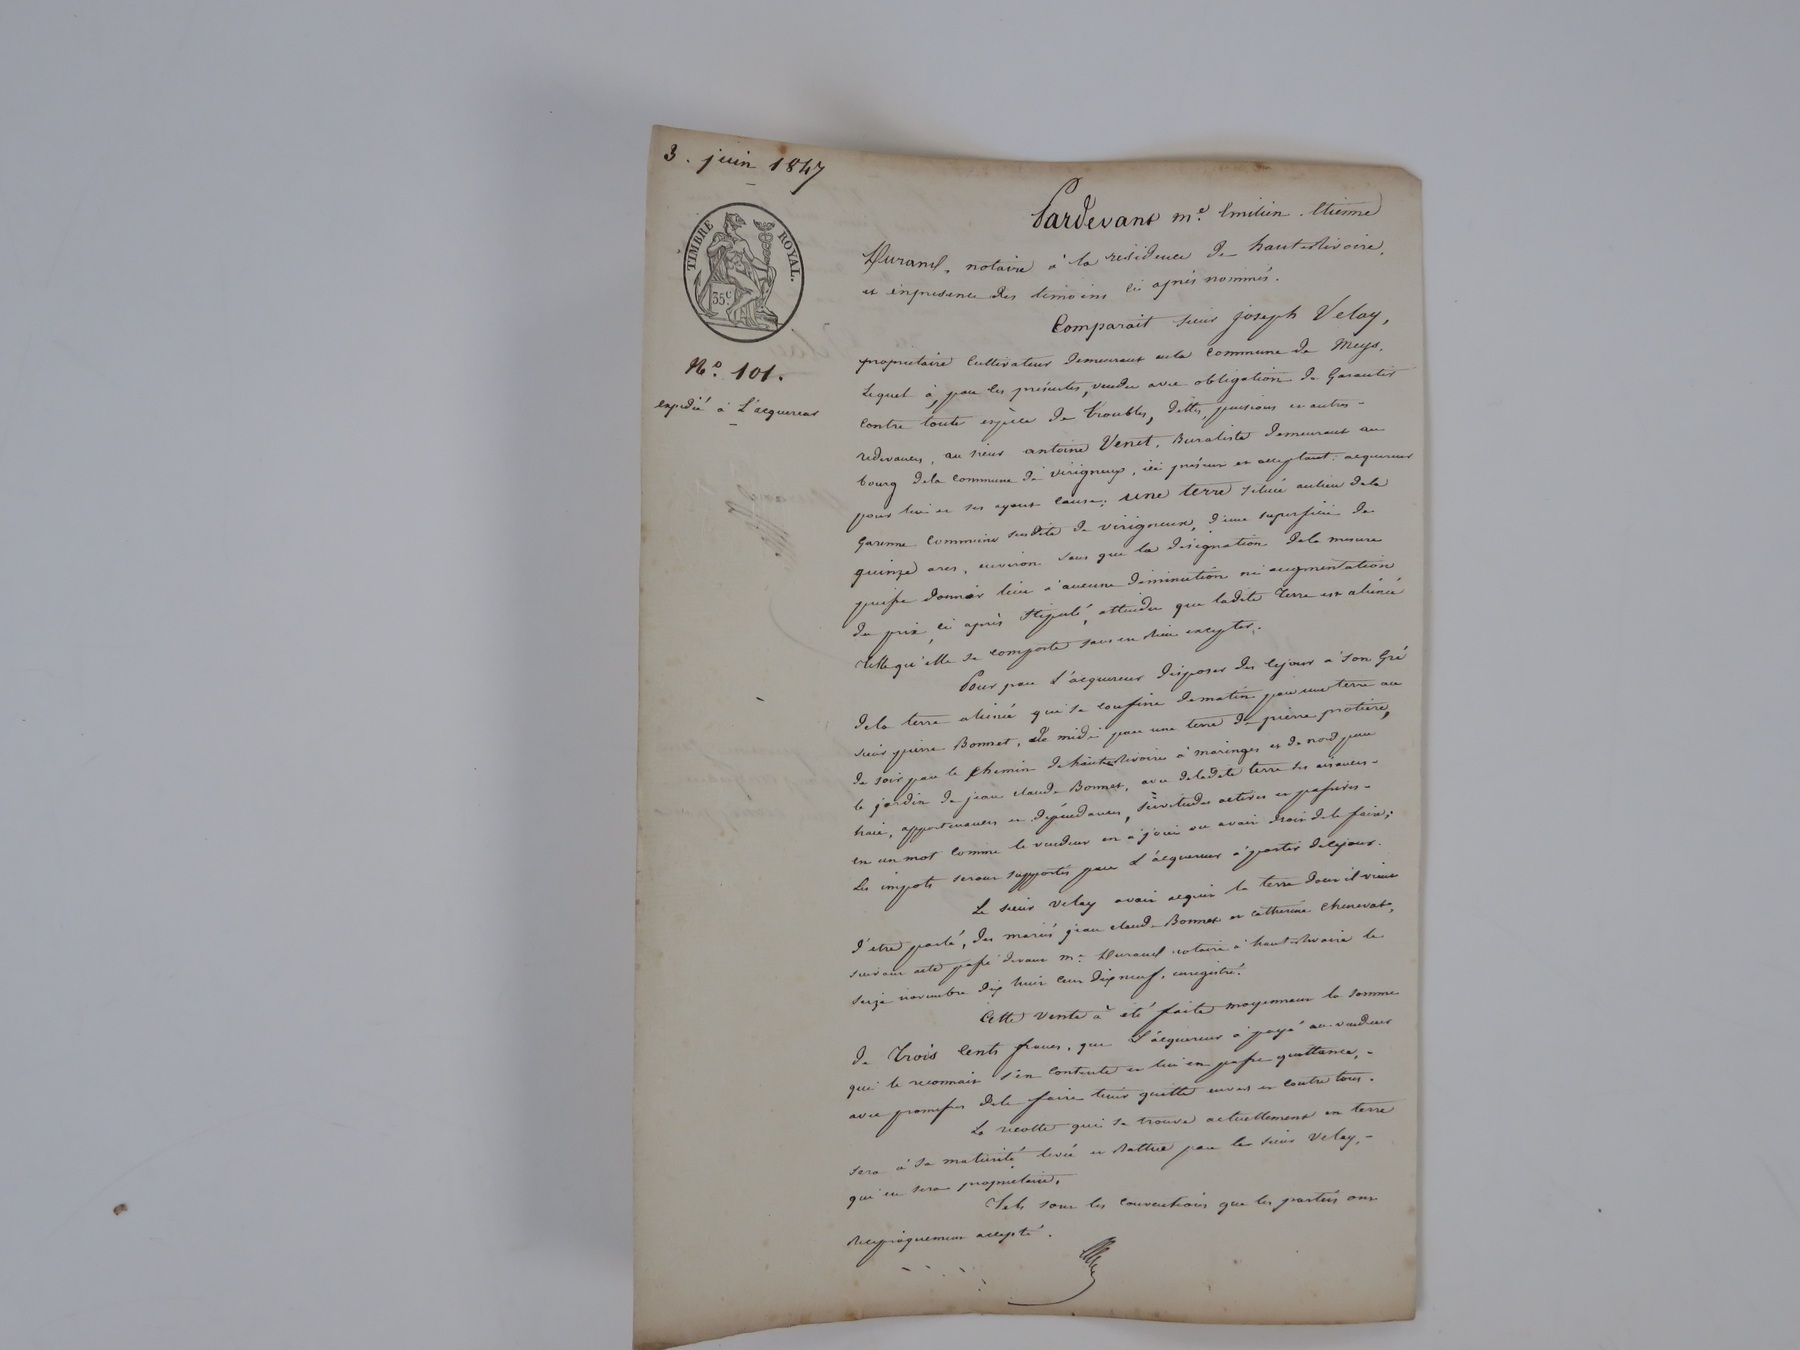 3. juin 1847
TIMBRE ROYAL.
35c
No. 101.
expedié à L'acquereur
Pardevant me. Emilien. Etienne
Durand, notaire à la residence de hauterivoire,
et enpresence des temoins ci après nommés.
Comparait sieur joseph Velay,
propriétaire Cultivateur demeurant enla Commune de Meys.
Lequel à, par les présentes, vendu avec obligation de Garantir
Contre toute espèce de troubles, dettes, pensions et autres-
redevances, au sieur antoine Venet, Buraliste demeurant au
bourg dela Commune de virigneux, ici présent et acceptant: acquereur
pour lui et ses ayant Cause; une terre située aulieu dela
Garenne Commune susdite de virigneux, d'une superficie de
quinze ares, environ sans que la désignation dela mesure
puisse donner lieu à aucune diminution ni augmentation
du prix, ci après stipulé, attendu que ladite terre est aliénée
telle qu'elle se comporte sans en rien excepter.
Pour par L'acquereur disposer dès cejour à son Gré
dela terre aliénée qui se confine dematin par une terre au
sieur pierre Bonnet, de midi par une terre de pierre protière,
de soir par le chemin de hauterivoire à maringes et de nord par
le jardin de jean claude Bonnet, avec deladite terre ses aisances-
haie, appartenances et dépendances, servitudes actives et passives-
en un mot comme le vendeur en à joui ou avait droit dele faire;
Les impots seront supportés par L'acquereur à partir decejour.
Le sieur velay avait acquis la terre dont il vient
d'etre parlé, des mariés jean claude Bonnet et catherine Chenevat,
suivant acte passé devant me. Durand notaire à hauterivoire le
seize novembre dix huit cent dix neuf, enregistré.
Cette vente à été faite moyennant la somme
de trois Cents francs, que L'acquereur à payé au vendeur
qui le reconnait s'en contente et lui en passe quittance,-
avec promesse dele faire tenir quitte envers et contre tous.
La recolte qui se trouve actuellement en terre
sera à sa maturité levée et battue par le sieur velay,-
qui en sera propriétaire.
Tels sont les conventions que les parties ont
Reciproquement accepté.